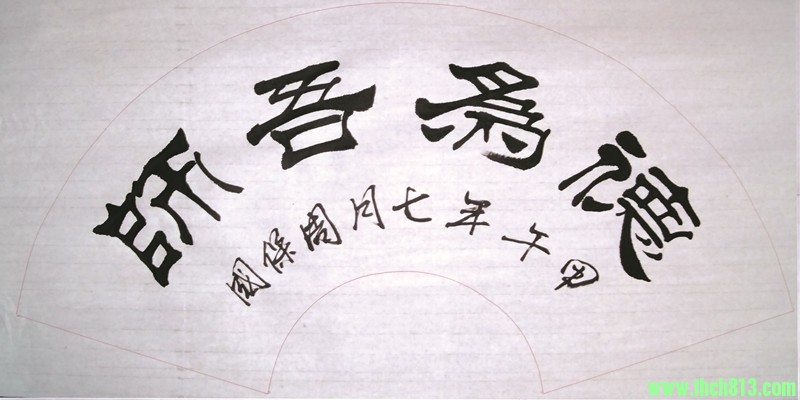 德為吾師
甲午年七月周保國
www.thch813.com